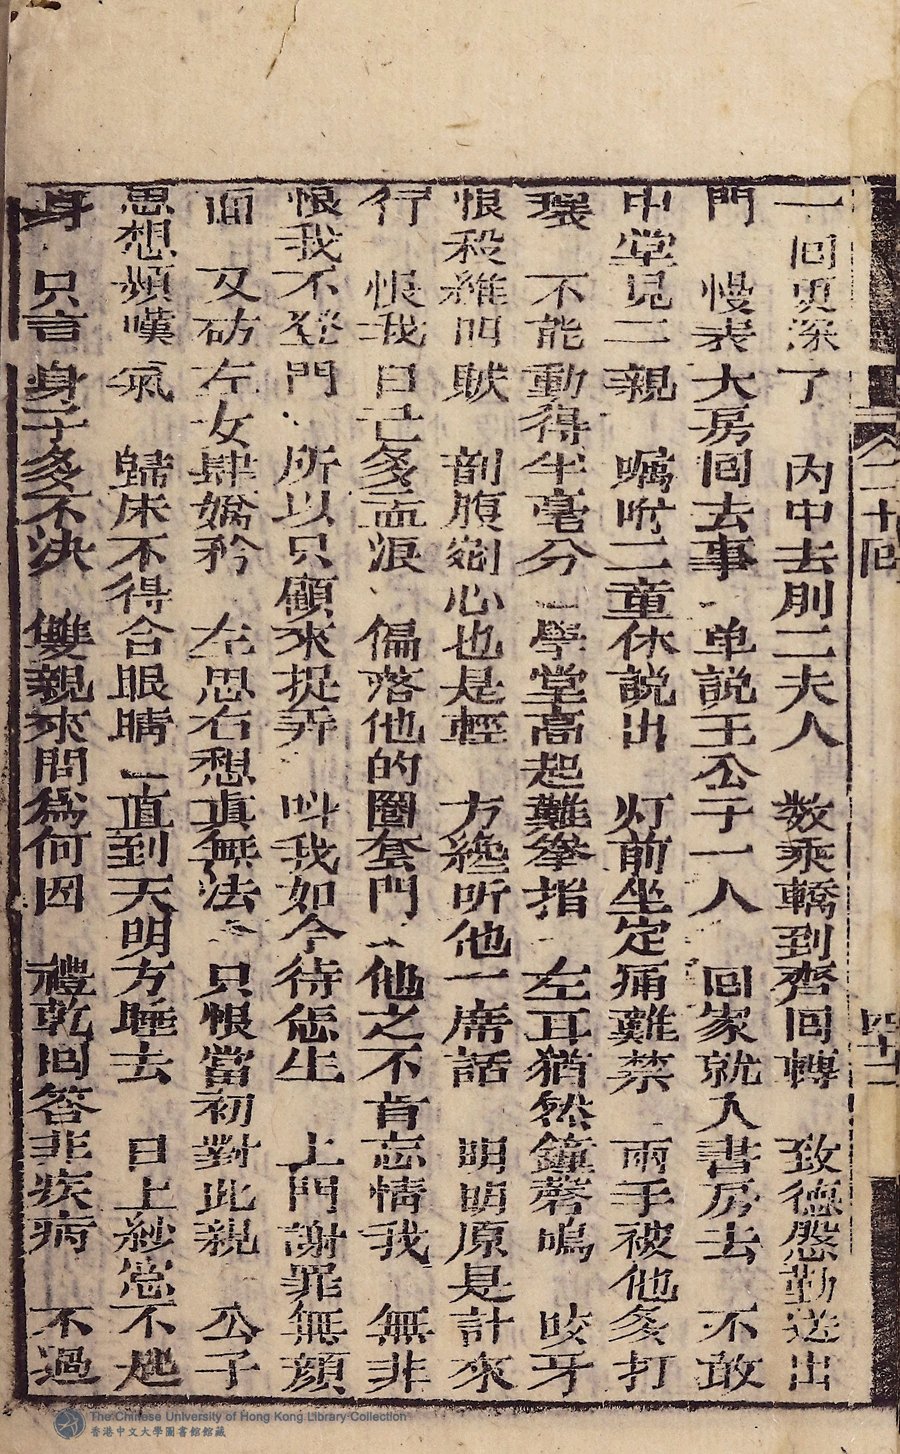 一回更深了　內中去別二夫人　数乘轎到齊回轉　致德慇勤送出
門　慢表大房回去事　单説王公子一人　回家就入書房去　不敢
中堂見二親　嘱咐二童休説出　灯前坐定痛難禁　兩手被他多打
壞　不能動得半毫分　學堂高起難拳指　左耳猶然鐘磬鳴　咬牙
恨殺維四賊　剖腹剜心也是輕　方纔听他一席話　明明原是計來
行　恨我日已多孟浪　偏落他的圈套門　他之不肯忘情我　無非
恨我不登門　所以只顧來捉弄　呌我如今待怎生　上門謝罪無顔
面　又砑左女肆嬌矜　左思右想真無法　只恨當初對此親　公子
思想頻嘆氣　歸床不得合眼睛　一直到天明方睡去　日上紗窓不起
身　只言身子多不決　雙親來問為何因　禮乾回答非疾病　不過
二十回
四十二
The Chinese University of Hong Kong Library Collection
香港中文大學圖書館館藏